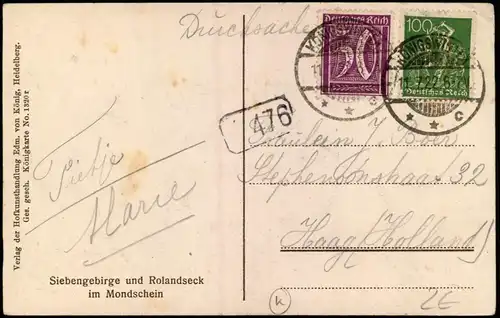 Drucksache
Deutsches Reich
50
100
Deutsches Reich
KÖNIGSWINTER
KÖNIGSWINTER
* * c
* * c
476
Fräulein J. Boer
Stephensonstraat 32
Haag (Holland)
Pietje
Marie
Verlag der Hofkunsthandlung Edm. von König, Heidelberg.
Ges. gesch. Königkarte No. 1320 r
Siebengebirge und Rolandseck
im Mondschein
K